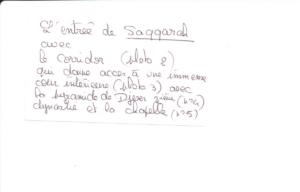 L'entrée de Saqqarah
avec
le corridor (slbb 2)
qui donne accès à une immense
cour intérieure (slbb 3) avec
la pyramide de Djeser 3ième (n°4)
dynastie et la chapelle (n°5)